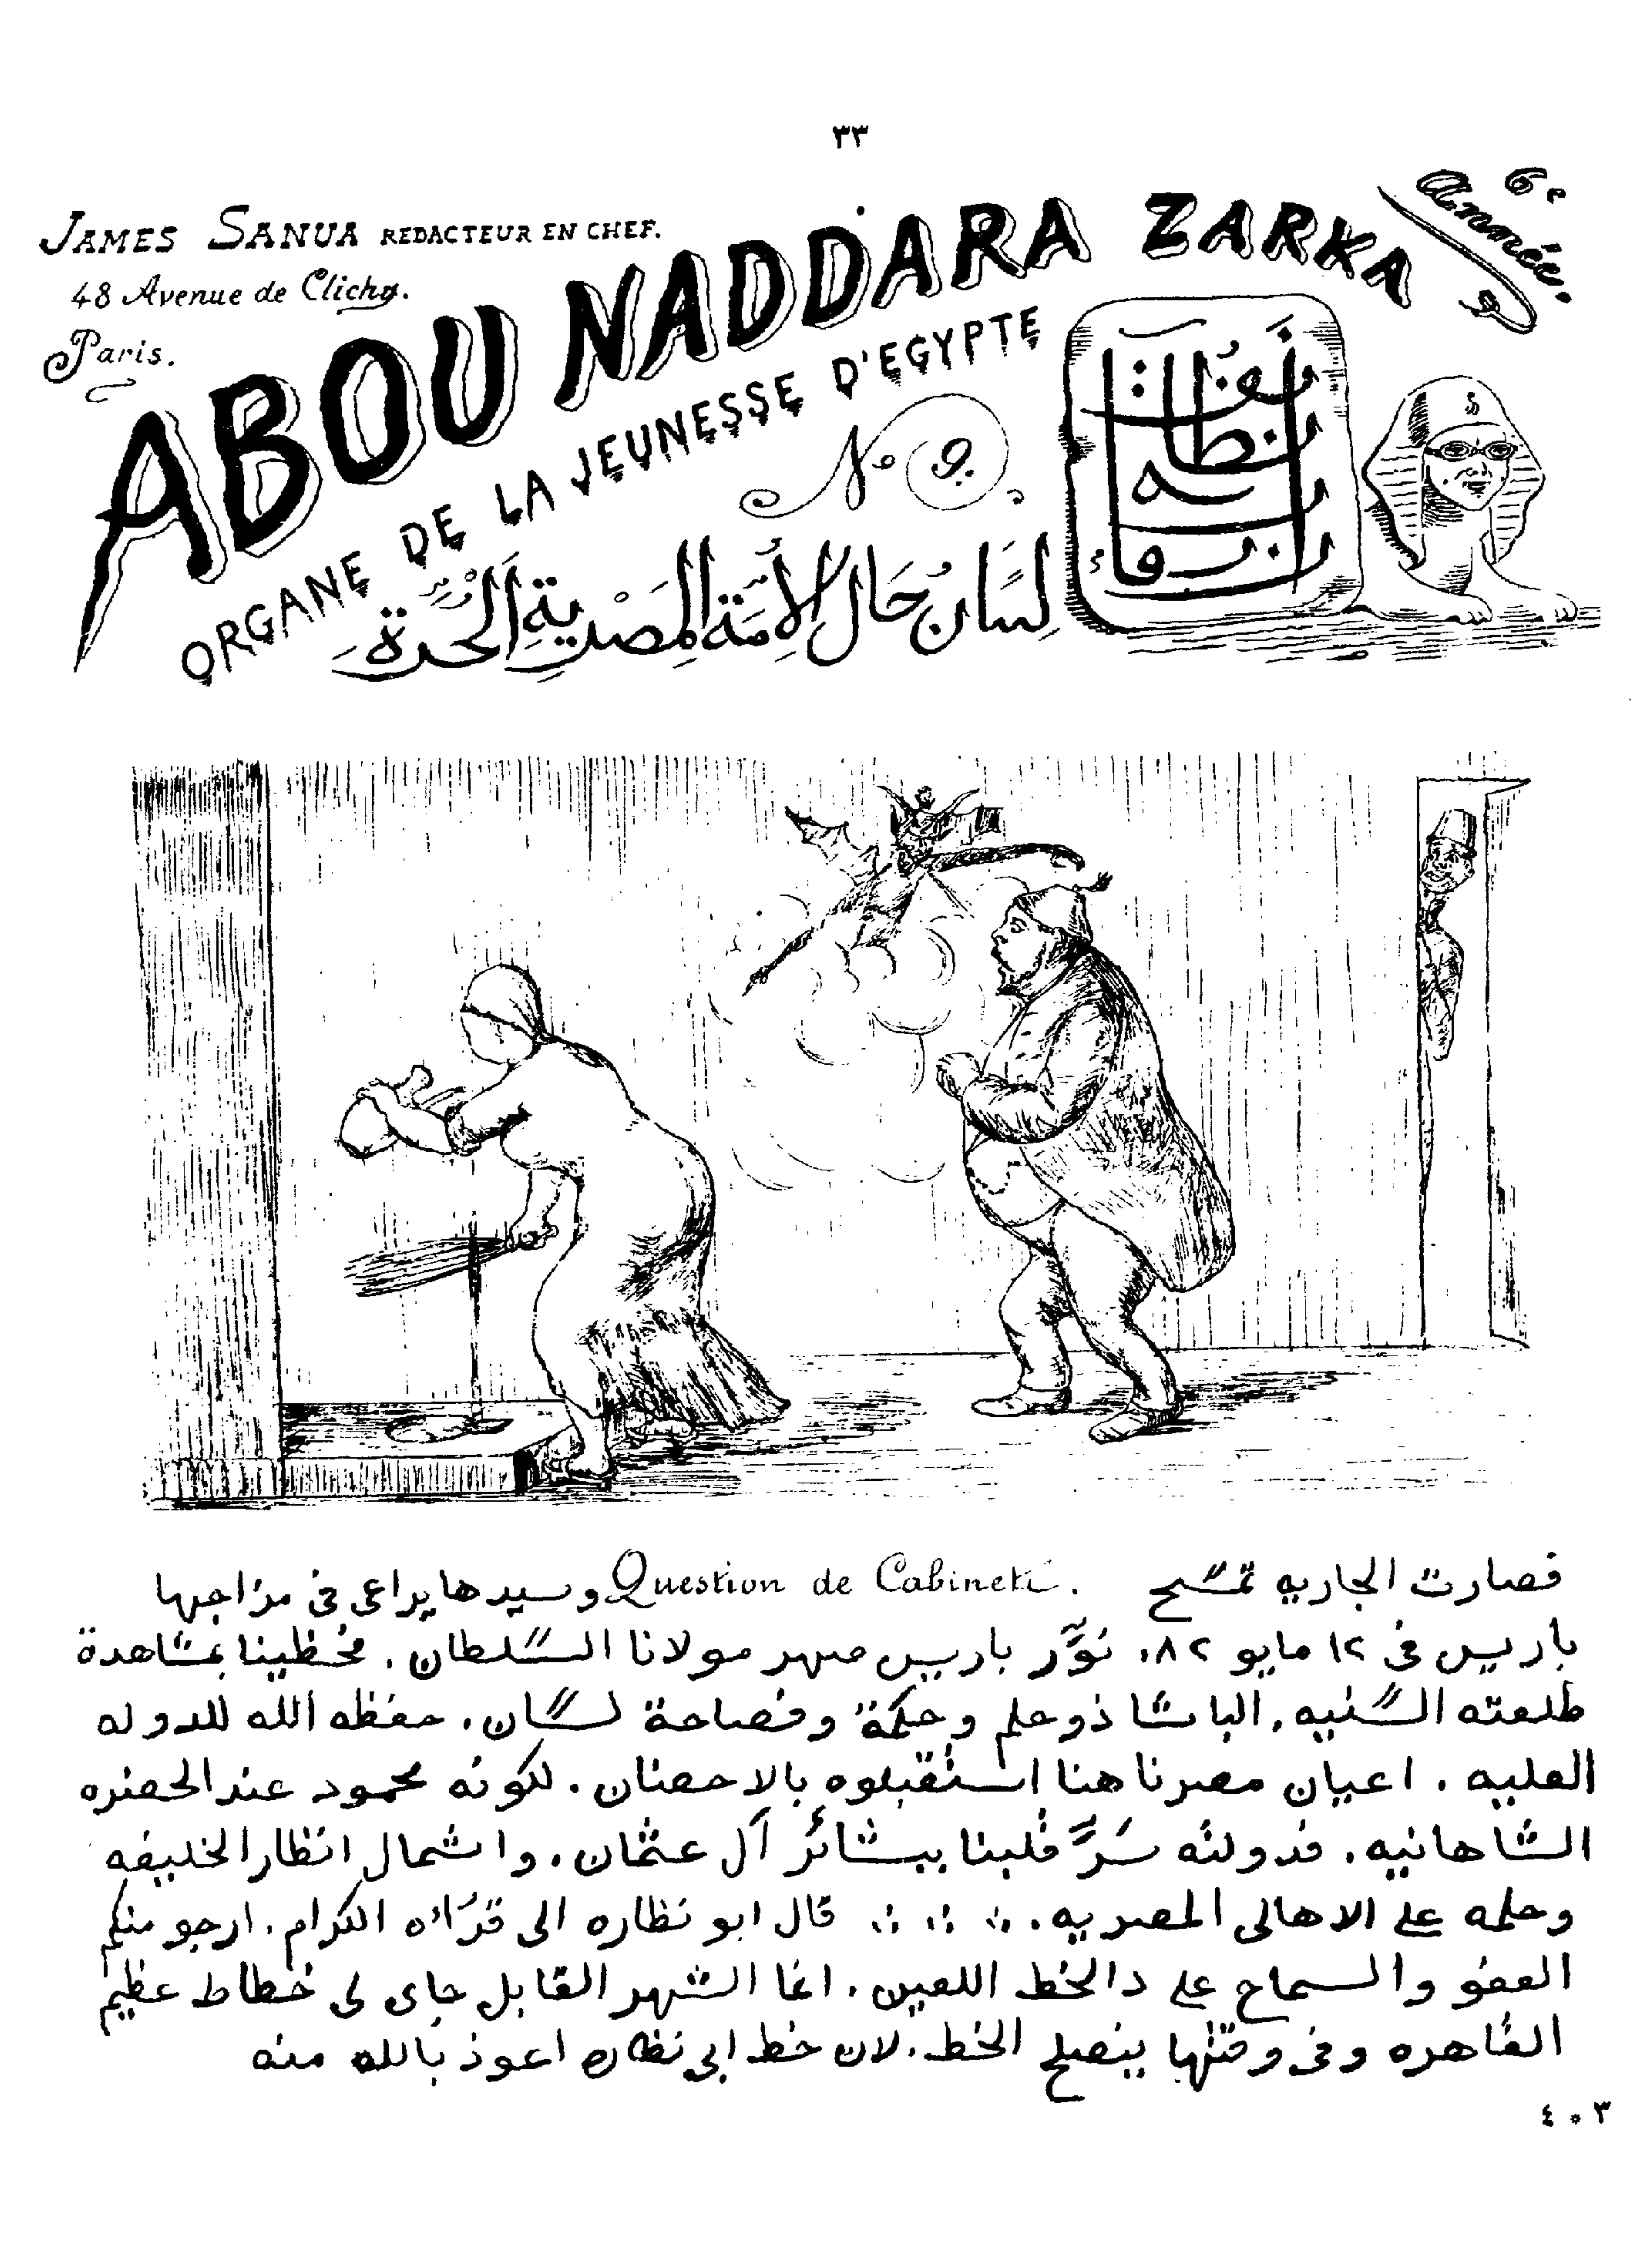 ٣٣
JAMES SANUA REDACTEUR EN CHEF.
48 Avenue de Clichy.
Paris.
ABOU NADDARA ZARKA
6e Année.
ORGANE DE LA JEUNESSE D'EGYPTE
No 9.
نظارة
زرقا
لِسَان حَال الأُمَّة المِصْرية الحُرّة
فصارت الجاريه تمسّح Question de Cabinet. وسيدها يراعى فى مزاجها
باريس فى ١٢ مايو ٨٢. نوَّر باريس صهر مولانا السّلطان. فحظينا بمشاهدة
طلعته السّنيه. الباشا ذو حلم وحكمة وفصاحة لسان. حفظه الله للدوله
العليه. اعيان مصرنا هنا استقبلوه بالاحضان. لكونه محمود عند الحضره
الشاهانيه. فدولته سَرَّ قلبنا ببشائر آل عثمان. واشمال انظار الخليفه
وحلمه على الاهالى المصريه. قال ابو نظاره الى قرّائه الكرام. ارجو منكم
العفو والسماح على دالخط اللعين. انما الشهر القابل جاى لى خطاط عظيم
القاهره وفى وقتها ينصلح الخط. لان خط ابى نظاره اعوذ بالله منه
٤٠٣